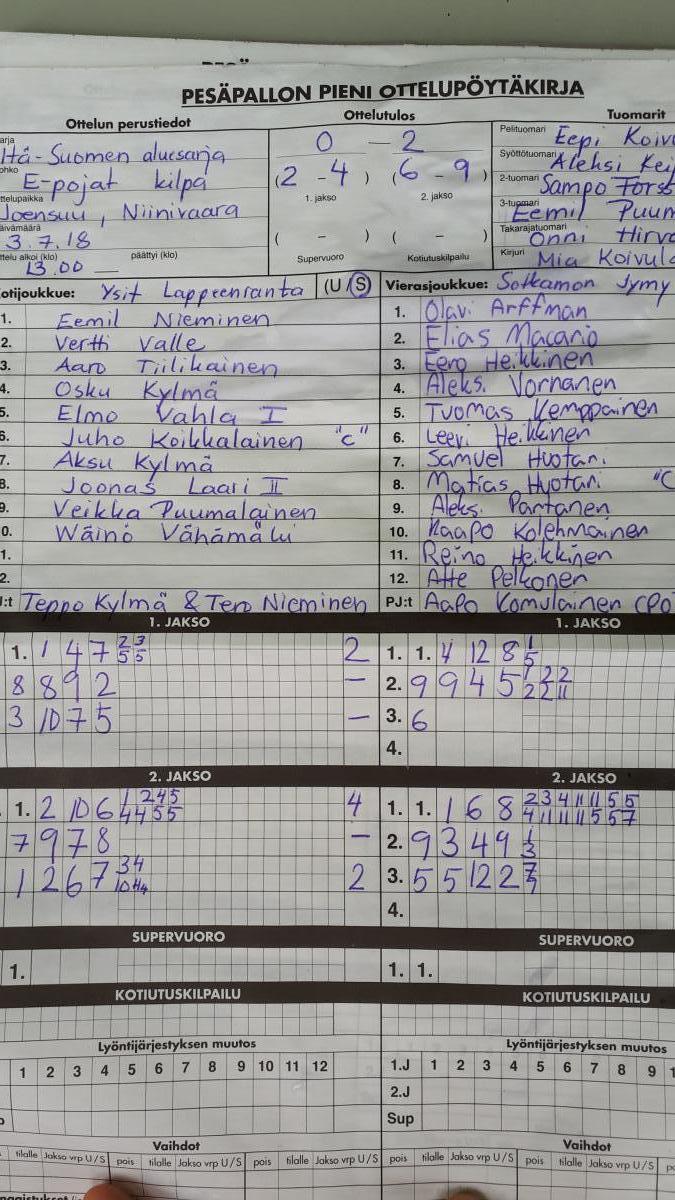 PESÄPALLON PIENI OTTELUPÖYTÄKIRJA
Ottelun perustiedot
Ottelutulos
Tuomarit
Itä-Suomen aluesarja
E-pojat kilpa
Joensuu, Niinivaara
3.7.18
päättyi (klo)
13.00
0 - 2
(2 - 4) (6 - 9)
1. jakso 2. jakso
( - ) ( - )
Supervuoro Kotiutuskilpailu
Pelituomari Eepi
Syöttötuomari Aleksi
2-tuomari Sampo
3-tuomari Eemil
Takarajatuomari Onni
Kirjuri Mia
Ysit Lappeenranta (U/S)
1. Eemil Nieminen
2. Vertti Valle
3. Aaro Tiilikainen
4. Osku Kylmä
5. Elmo Vahla I
6. Juho Koikkalainen "C"
7. Aksu Kylmä
8. Joonas Laari II
9. Veikka Puumalainen
0. Wäinö Vähämäki
1.
2.
Teppo Kylmä & Tero Nieminen
Vierasjoukkue: Sotkamon Jymy
1. Olavi Arffman
2. Elias Macario
3. Eero Heikkinen
4. Aleksi Vornanen
5. Tuomas Kemppainen
6. Leevi Heikkinen
7. Samuel Huotari
8. Matias Huotari "C
9. Aleksi Partanen
10. Kaapo Kolehmainen
11. Reino Heikkinen
12. Atte Pelkonen
PJ:t Aapo Komulainen (PO
1. JAKSO
1. 1 4 7 2/5 3/5 2
8 8 9 2 -
3 10 7 5 -
1. JAKSO
1. 1. 4 12 8 1/5
2. 9 9 4 5 1/2 2/2 2/11
3. 6
4.
2. JAKSO
1. 2 10 6 1/4 2/4 4/5 5/5 4
7 9 7 8 -
1 2 6 7 3/10 4/11 2
2. JAKSO
1. 1. 1 6 8 2/4 3/11 4/11 11/11 11/5 5/5 5/7
2. 9 3 4 9 1/3
3. 5 5 12 2
4.
SUPERVUORO
1.
SUPERVUORO
1. 1.
KOTIUTUSKILPAILU
KOTIUTUSKILPAILU
Lyöntijärjestyksen muutos
1 2 3 4 5 6 7 8 9 10 11 12
Lyöntijärjestyksen muutos
1.J 1 2 3 4 5 6 7 8 9
2.J
Sup
Vaihdot
tilalle Jakso vrp U/S pois tilalle Jakso vrp U/S pois tilalle Jakso vrp U/S
Vaihdot
pois tilalle Jakso vrp U/S pois tilalle Jakso vrp U/S pois